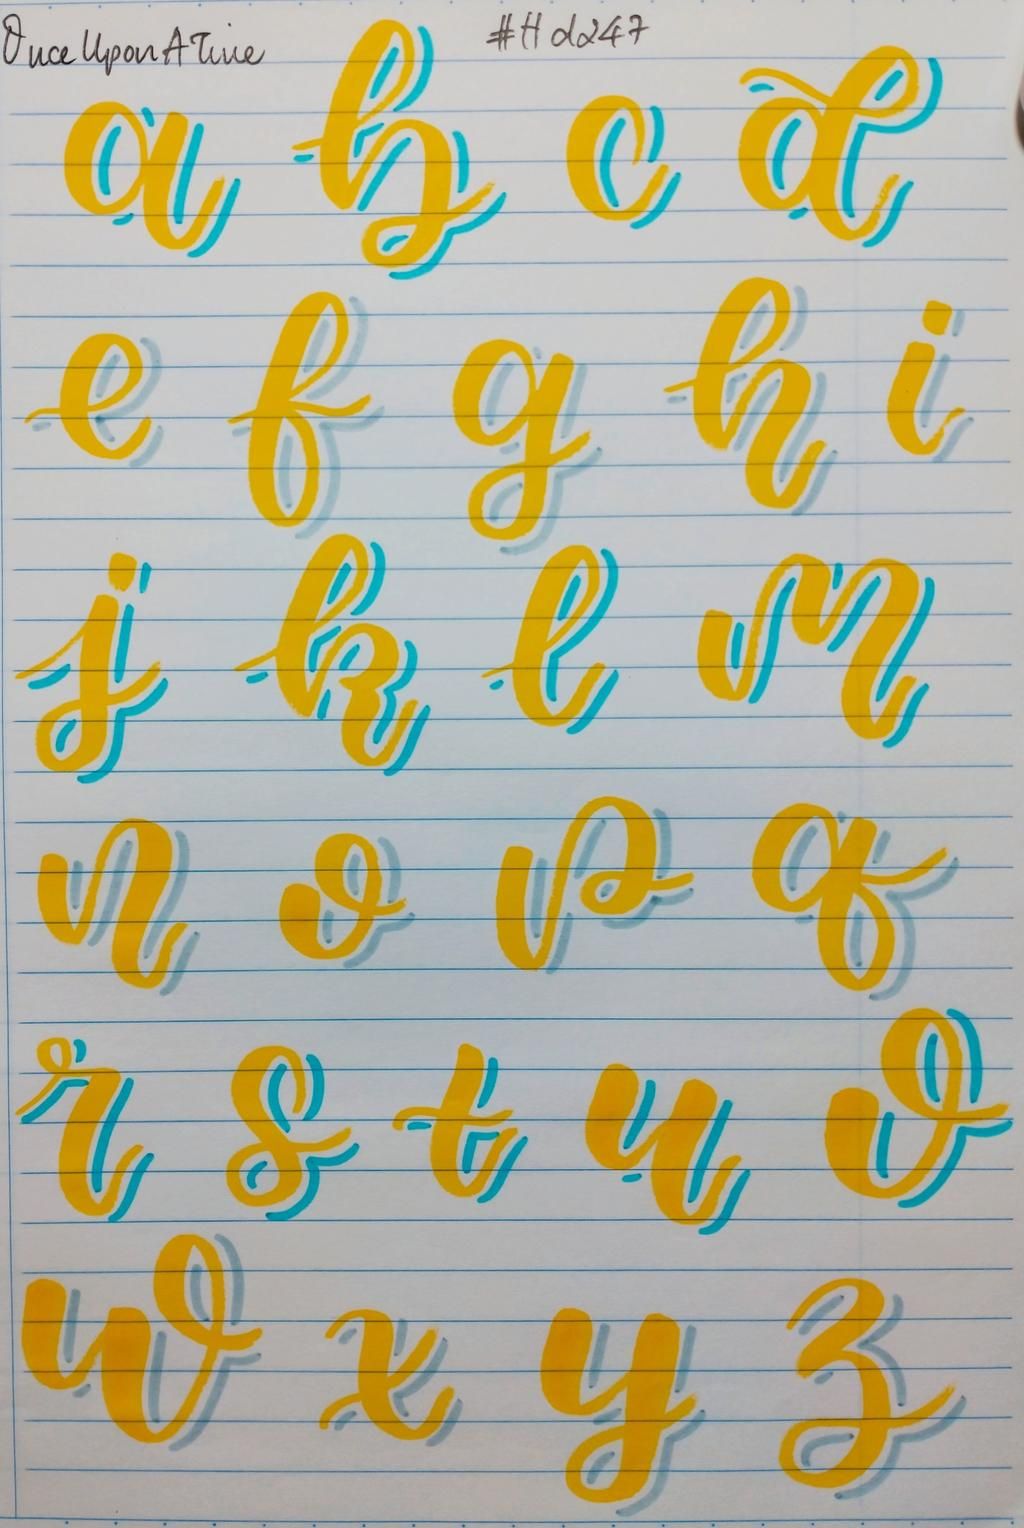 OnceUponATime #Hd247
a b c d
e f g h i
j k l m
n o p q
r s t u v
w x y z